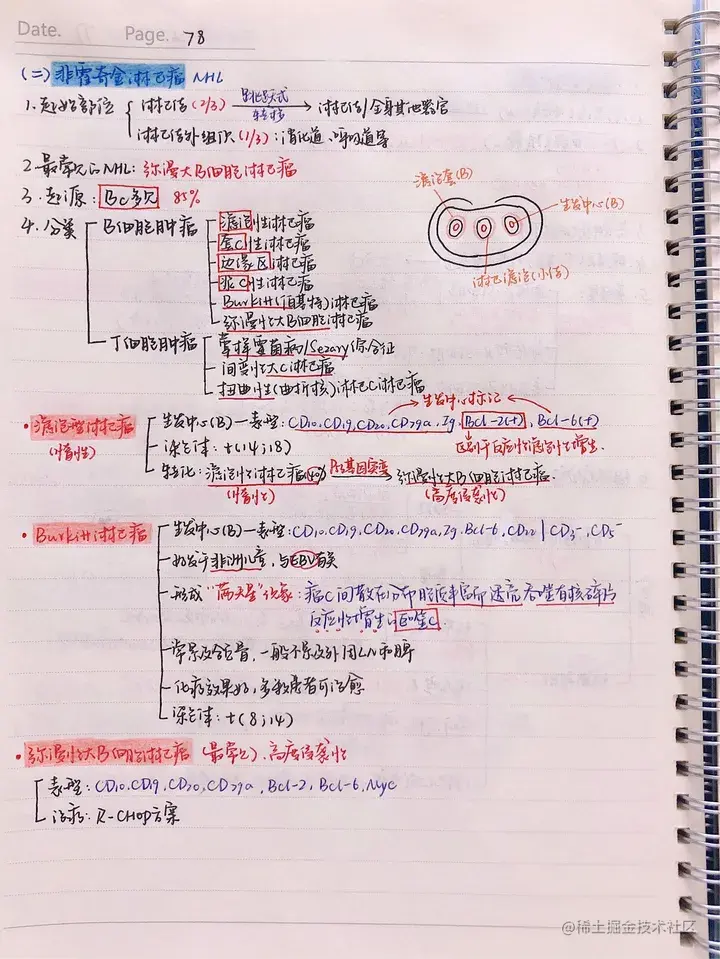 Date.
Page. 78
(二) 非霍奇金淋巴瘤 NHL
1. 起始部位
淋巴结 (2/3) 跳跃式 转移 淋巴结/全身其他器官
淋巴结外组织 (1/3): 消化道、呼吸道等
2. 最常见的NHL: 弥漫大B细胞淋巴瘤
3. 起源: Bc多见 85%
滤泡套(B)
生发中心(B)
淋巴滤泡(小结)
4. 分类
B细胞肿瘤
滤泡性淋巴瘤
套C性淋巴瘤
边缘区淋巴瘤
Burkitt(伯基特)淋巴瘤
弥漫性大B细胞淋巴瘤
T细胞肿瘤
蕈样霉菌病/Sezary综合征
间变性大C淋巴瘤
扭曲性(曲折核)淋巴C淋巴瘤
生发中心标记
• 滤泡型淋巴瘤
(惰性)
生发中心(B)—表型: CD10, CD19, CD20, CD79a, Ig, Bcl-2(+), Bcl-6(+)
区别于反应性滤泡性增生.
染色体: t(14;18)
转化: 滤泡性淋巴瘤 P53基因突变 弥漫性大B细胞淋巴瘤.
(惰性) (高度侵袭性)
• Burkitt淋巴瘤
生发中心(B)—表型: CD10, CD19, CD20, CD79a, Ig, Bcl-6, CD22 | CD3⁻, CD5⁻
好发于非洲儿童, 与EBV有关
形成“满天星”图象: 瘤C间散在分布胞质丰富而透亮吞噬有核碎片
反应性增生的巨噬C.
常累及结外, 一般不累及外周LN和脾
化疗效果好, 多数患者可治愈
染色体: t(8;14)
• 弥漫性大B细胞淋巴瘤 (最常见). 高度侵袭性
表型: CD10, CD19, CD20, CD79a, Bcl-2, Bcl-6, Myc
治疗: R-CHOP方案
@稀土掘金技术社区